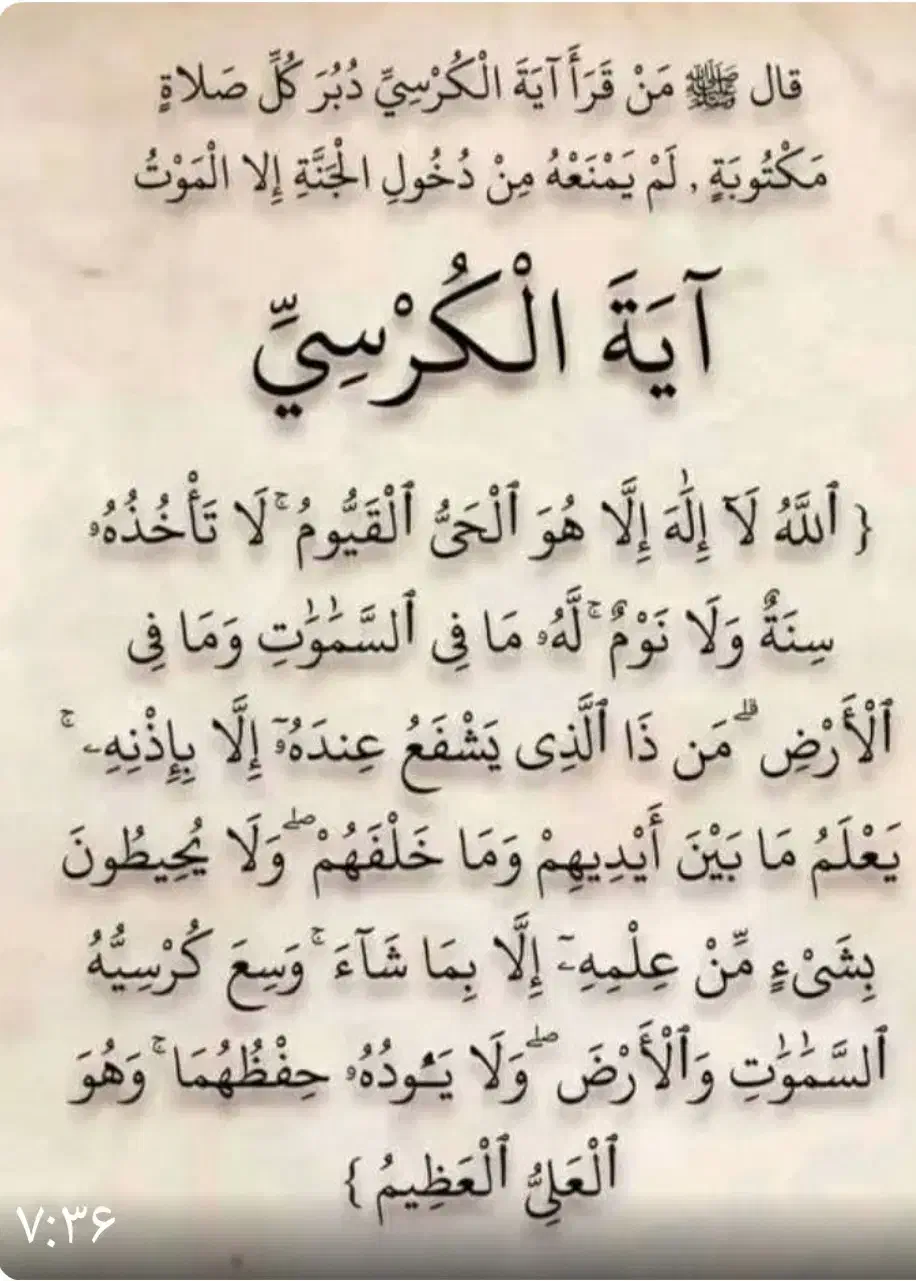 قال ﷺ مَنْ قَرَأَ آيَةَ الْكُرْسِيِّ دُبُرَ كُلِّ صَلاةٍ
مَكْتُوبَةٍ , لَمْ يَمْنَعْهُ مِنْ دُخُولِ الْجَنَّةِ إِلا الْمَوْتُ
آيَةَ الْكُرْسِيِّ
{ ٱللَّهُ لَآ إِلَٰهَ إِلَّا هُوَ ٱلْحَىُّ ٱلْقَيُّومُ ۚ لَا تَأْخُذُهُۥ
سِنَةٌ وَلَا نَوْمٌ ۚ لَّهُۥ مَا فِى ٱلسَّمَٰوَٰتِ وَمَا فِى
ٱلْأَرْضِ ۗ مَن ذَا ٱلَّذِى يَشْفَعُ عِندَهُۥٓ إِلَّا بِإِذْنِهِۦ ۚ
يَعْلَمُ مَا بَيْنَ أَيْدِيهِمْ وَمَا خَلْفَهُمْ ۖ وَلَا يُحِيطُونَ
بِشَىْءٍ مِّنْ عِلْمِهِۦٓ إِلَّا بِمَا شَآءَ ۚ وَسِعَ كُرْسِيُّهُ
ٱلسَّمَٰوَٰتِ وَٱلْأَرْضَ ۖ وَلَا يَـُٔودُهُۥ حِفْظُهُمَا ۚ وَهُوَ
ٱلْعَلِىُّ ٱلْعَظِيمُ }
۷:۳۶